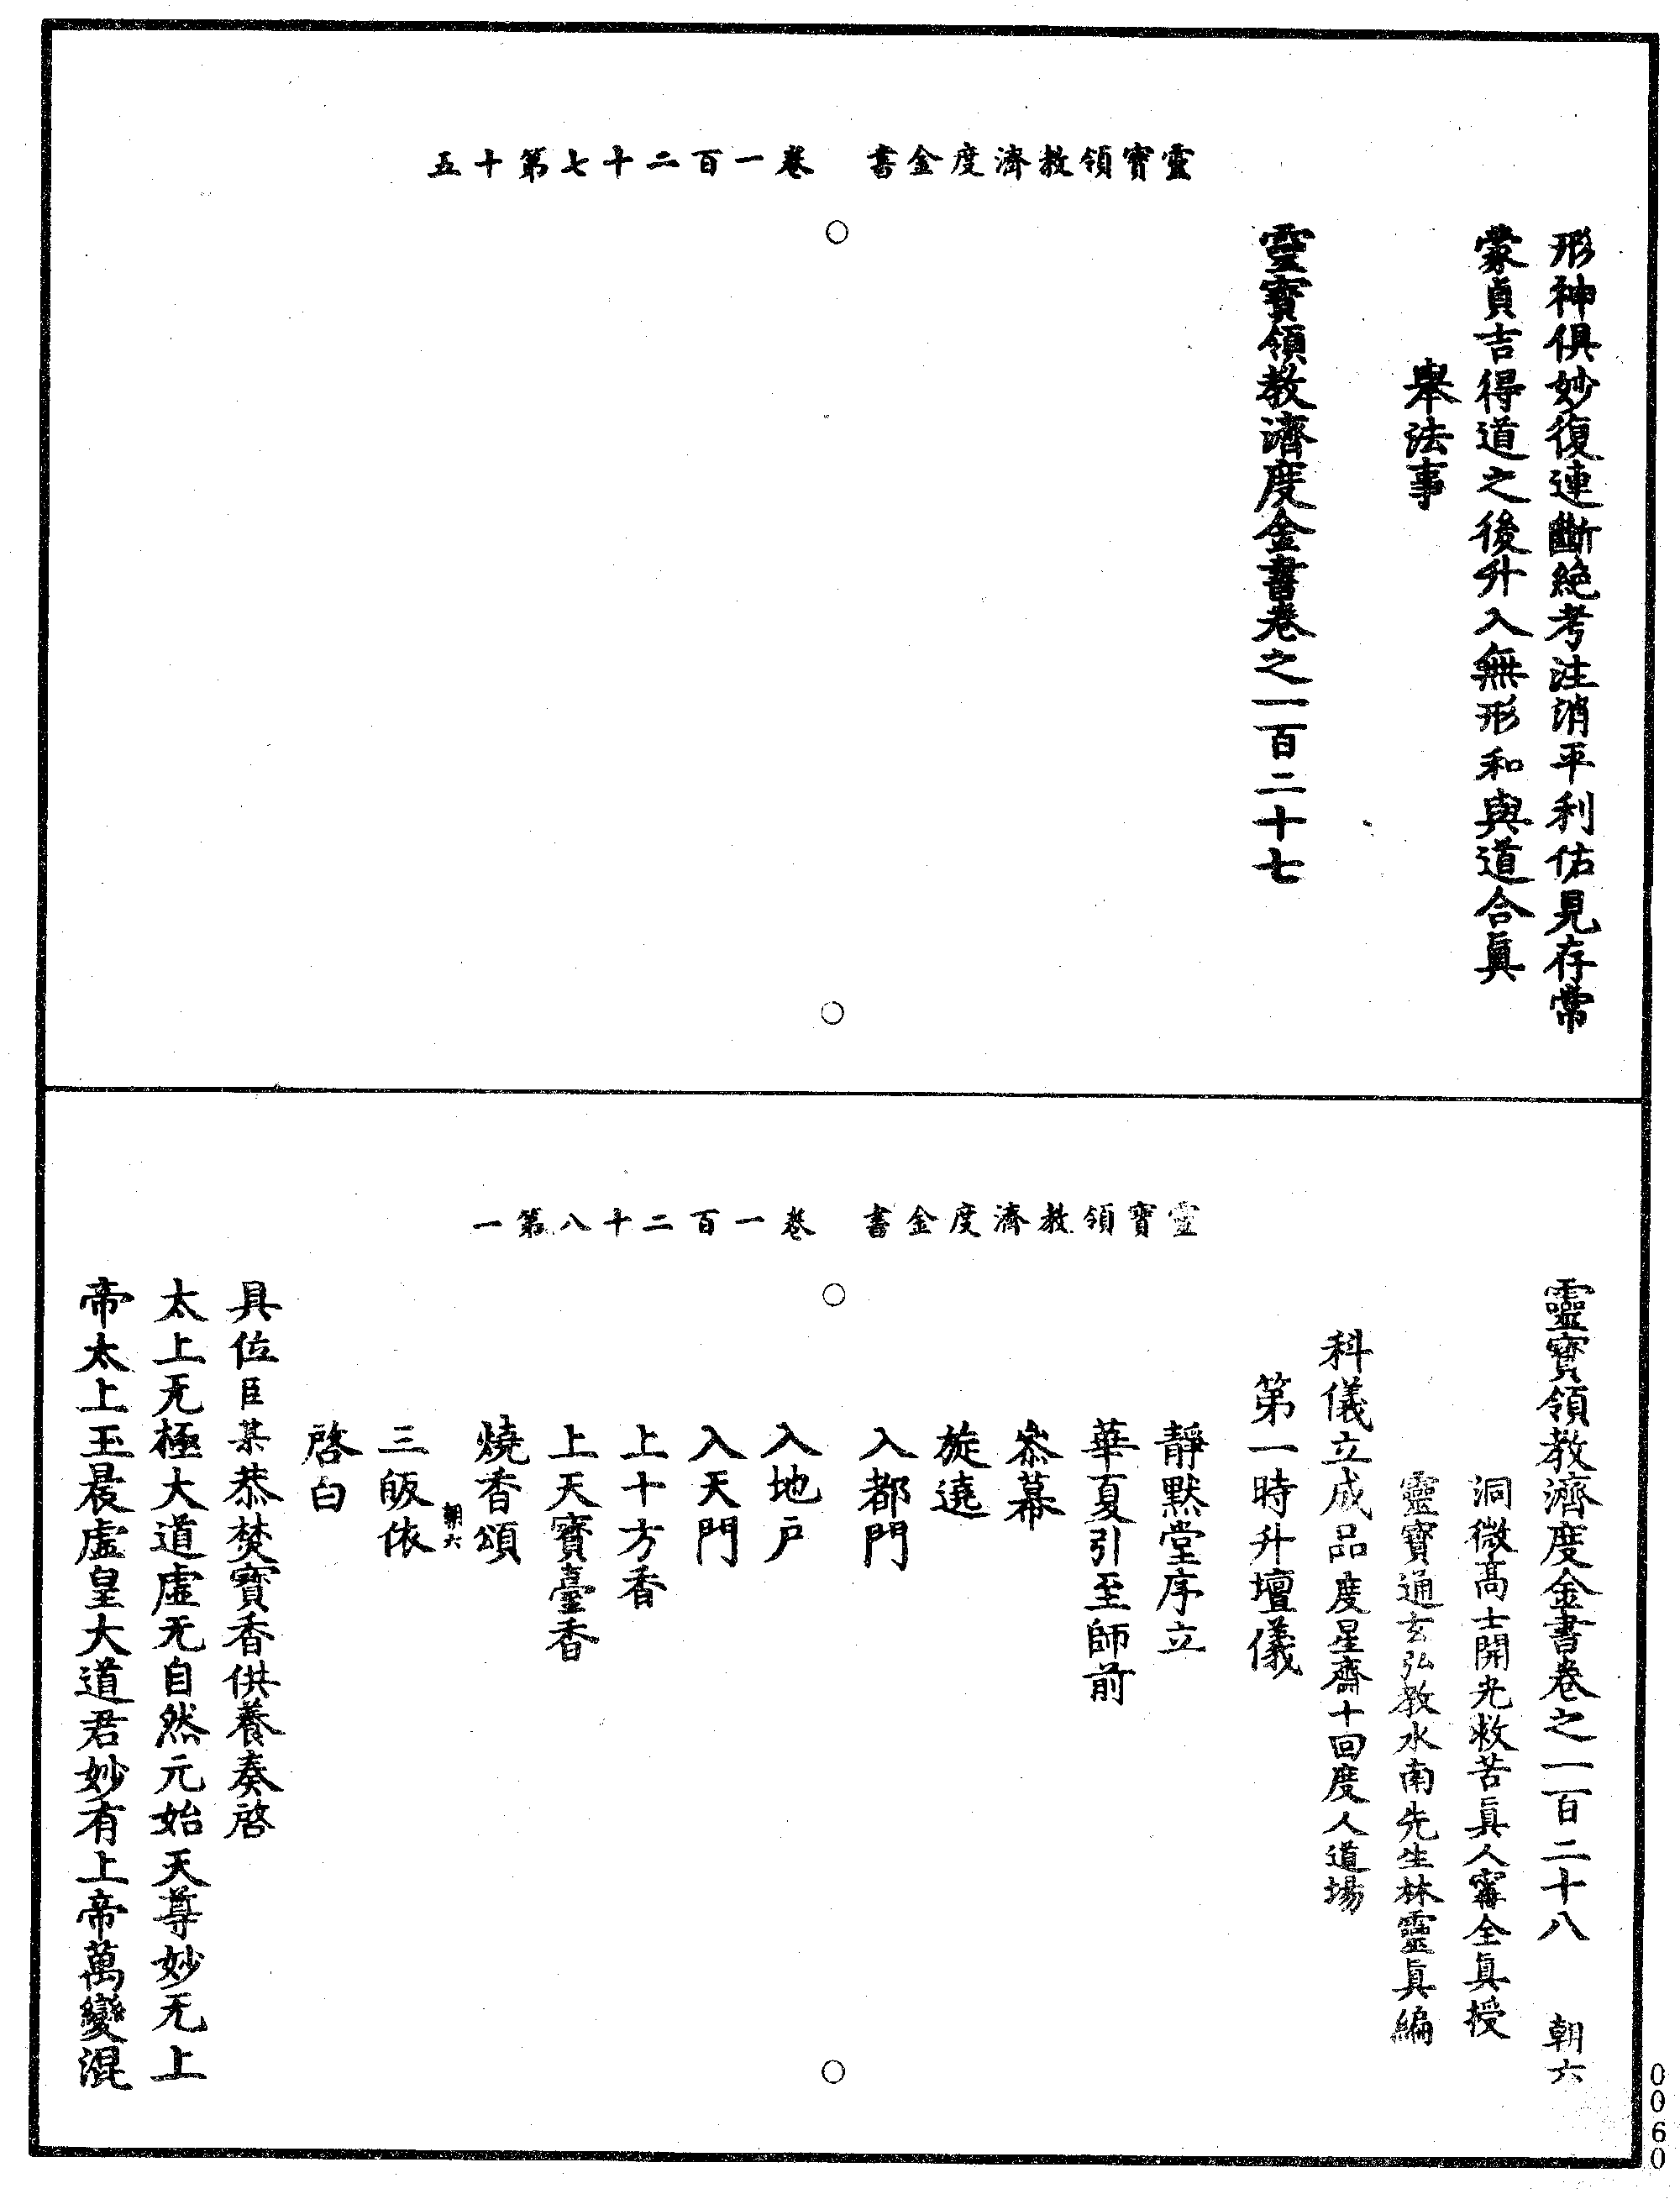 靈寶領教濟度金書　卷一百二十七第十五
形神俱妙復連斷絕考注消平利佑見存常
蒙貞吉得道之後升入無形和與道合眞
舉法事
靈寶領教濟度金書卷之一百二十七
靈寶領教濟度金書　卷一百二十八第一
靈寶領教濟度金書卷之一百二十八　朝六
洞微高士開光救苦眞人寗全眞授
靈寶通玄弘教水南先生林靈眞編
科儀立成品度星齋十回度人道場
第一時升壇儀
靜默堂序立
華夏引至師前
叅幕
旋遶
入都門
入地户
入天門
上十方香
上天寶臺香
燒香頌
朝六
三皈依
啓白
具位臣某恭焚寶香供養奏啓
太上无極大道虛无自然元始天尊妙无上
帝太上玉晨虛皇大道君妙有上帝萬變混
0060